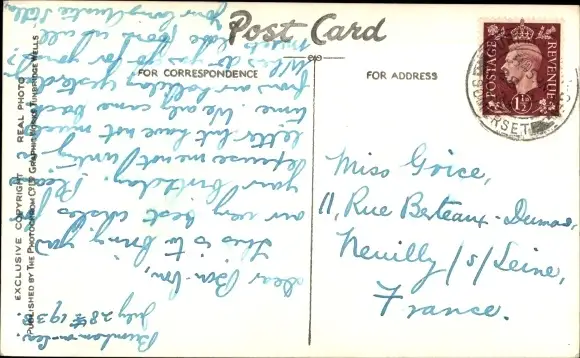 Post Card
FOR CORRESPONDENCE
FOR ADDRESS
EXCLUSIVE COPYRIGHT REAL PHOTO
PUBLISHED BY THE PHOTOCHROM CO. LTD GRAPHIC WORKS TUNBRIDGE WELLS
POSTAGE
REVENUE
1½D
RSET
Miss Grice,
11, Rue Berteaux-Dumas,
Neuilly /s/ Seine,
France.
July 28th 193
Dear Bon-Bon,
This is to bring you
our very best wishes for
your birthday. Please
excuse me not writing a
letter but have not much
time. We only came back
from our holiday yesterday